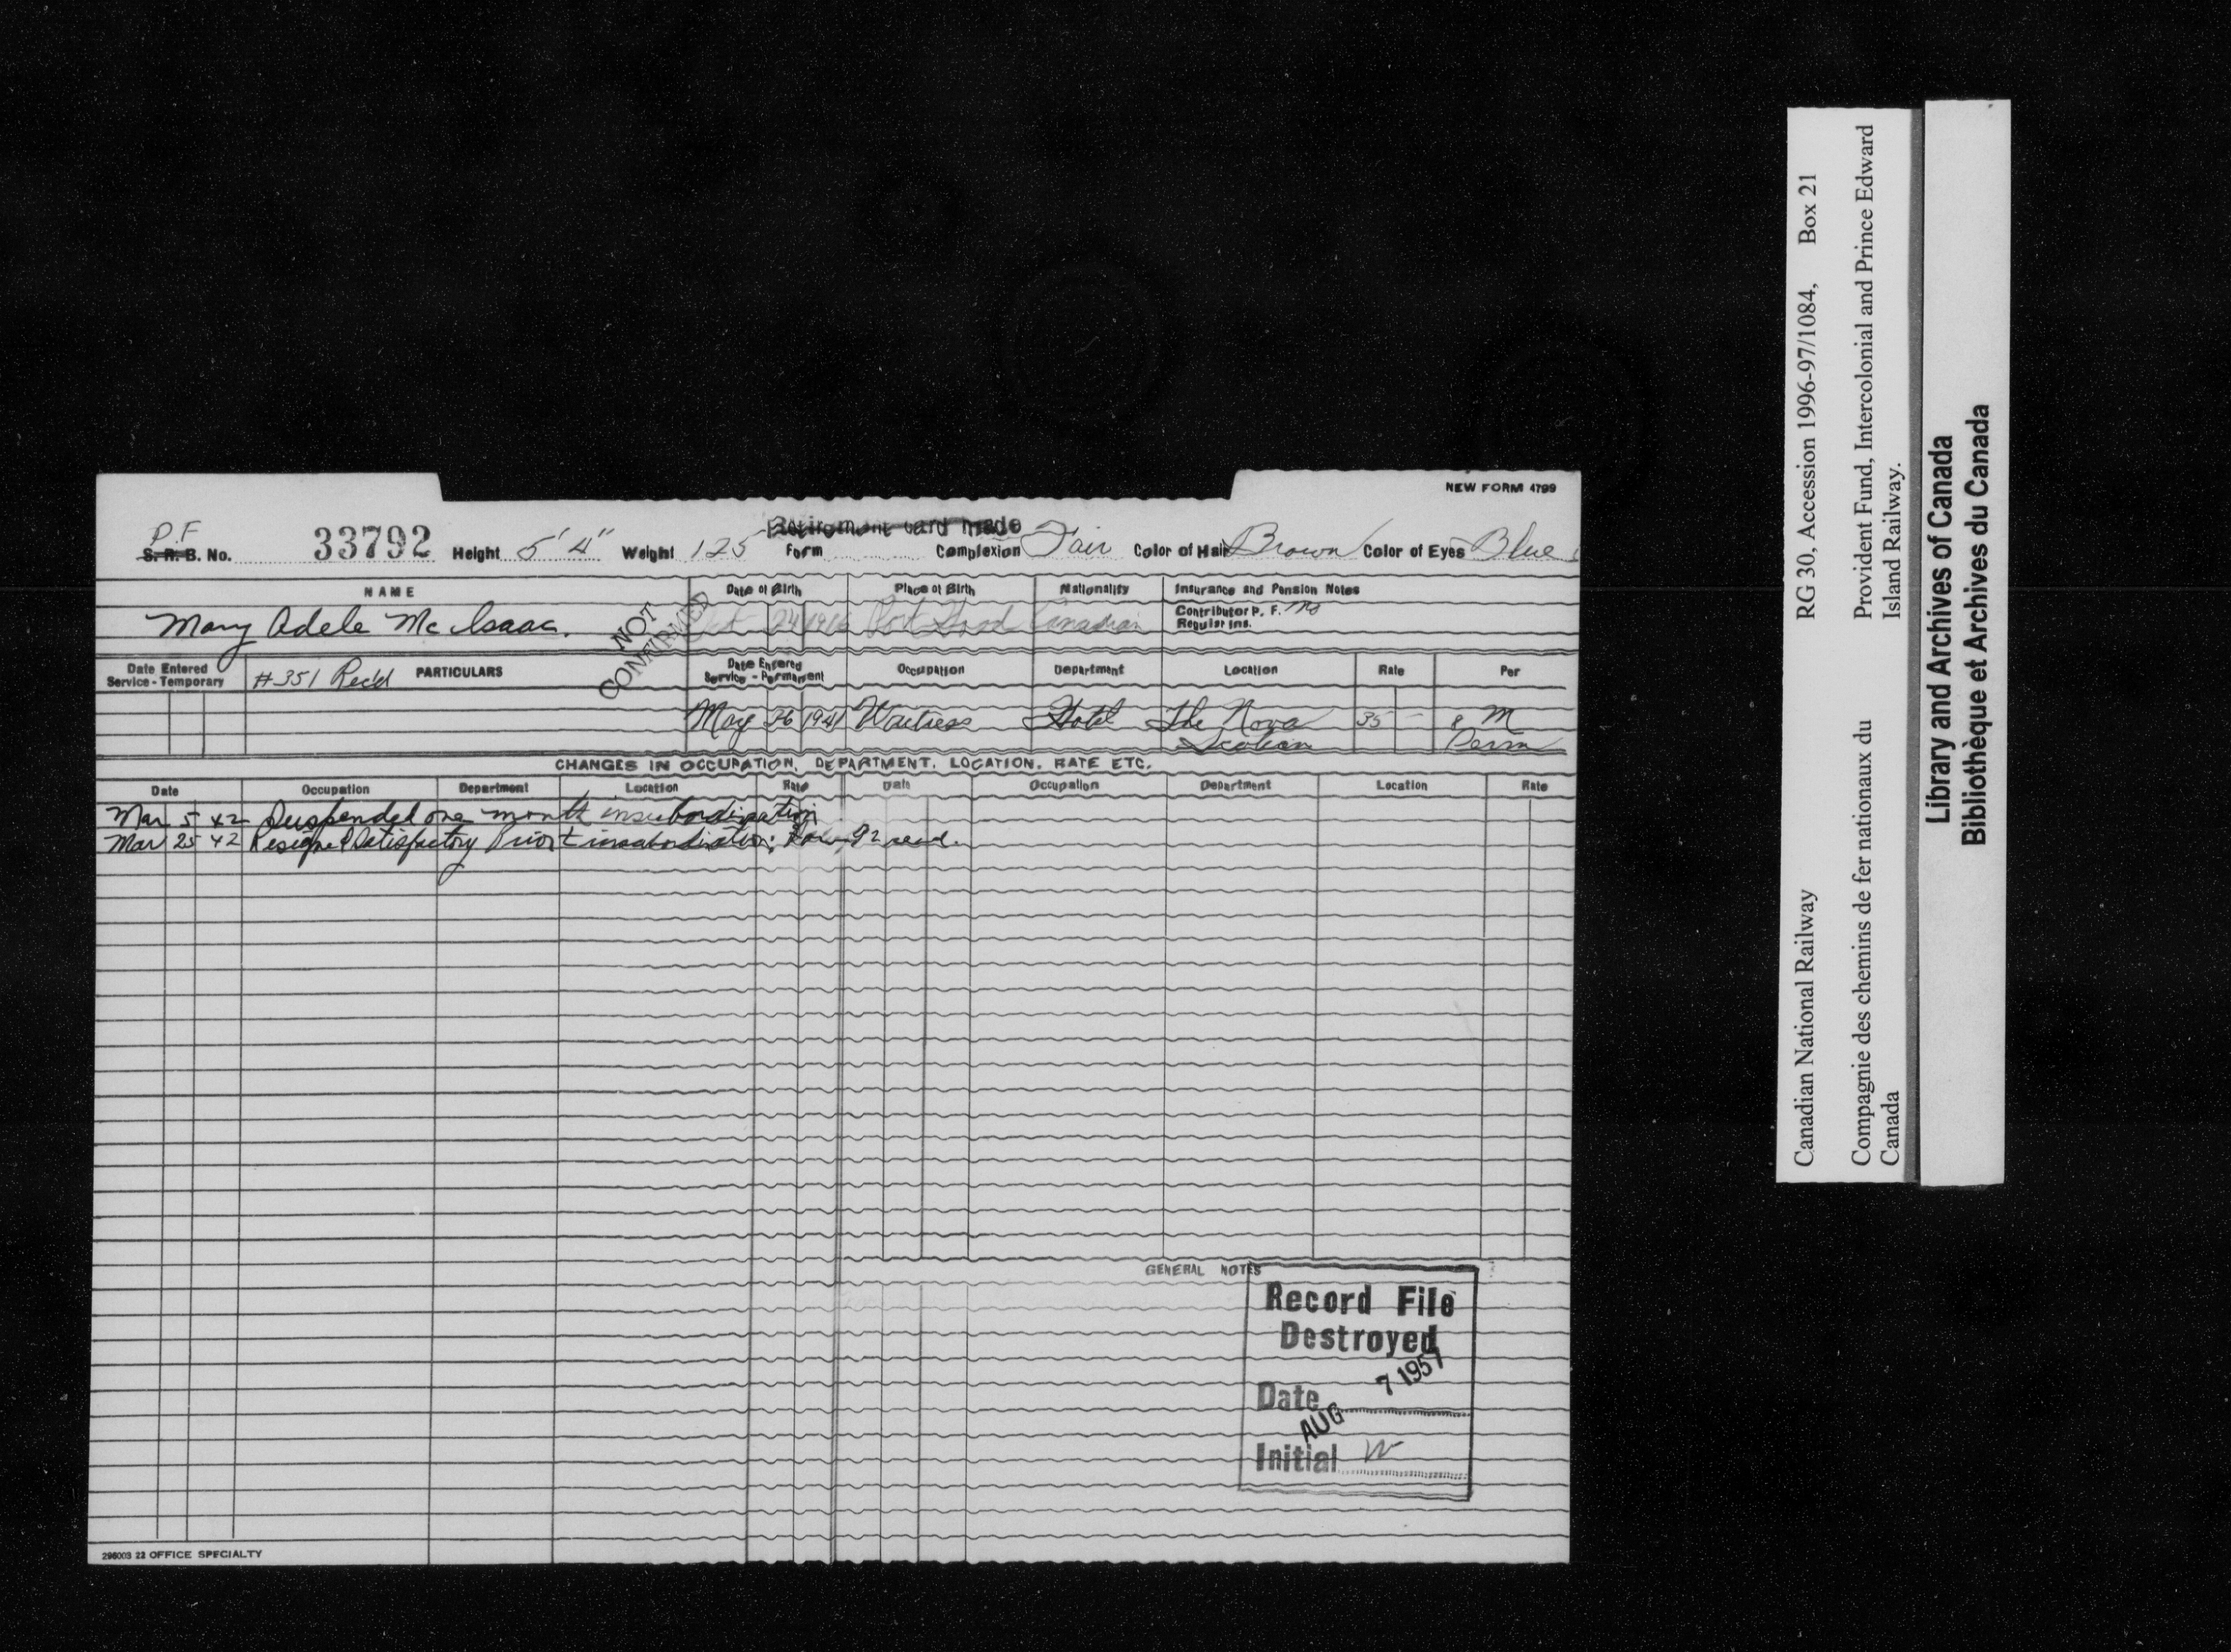 NEW FORM 4799
Retirement card made
P.F
S.R.B. No. 33792 Height 5' 4" Weight 125 Form Complexion Fair Color of Hair Brown Color of Eyes Blue
NAME Date of Birth Place of Birth Nationality Insurance and Pension Notes
Mary Adele McIsaac. NOT CONFIRMED 24 1916 Port Hood Canadian Contributor P. F. No
Regular Ins.
Date Entered Service - Temporary #351 Recd PARTICULARS Date Entered Service - Permanent Occupation Department Location Rate Per
May 26 1941 Waitress Hotel The Nova Scotian 35 M
Perm
CHANGES IN OCCUPATION, DEPARTMENT, LOCATION, RATE ETC.
Date Occupation Department Location Rate Date Occupation Department Location Rate
Mar 5 42 Suspended one month insubordination
Mar 25 42 Resigned Satisfactory Prior t insubordination; 92 recd.
GENERAL NOTES
Record File
Destroyed
Date AUG 7 1957
Initial W
296003 22 OFFICE SPECIALTY
Canadian National Railway RG 30, Accession 1996-97/1084, Box 21
Compagnie des chemins de fer nationaux du Provident Fund, Intercolonial and Prince Edward
Canada Island Railway.
Library and Archives of Canada
Bibliothèque et Archives du Canada